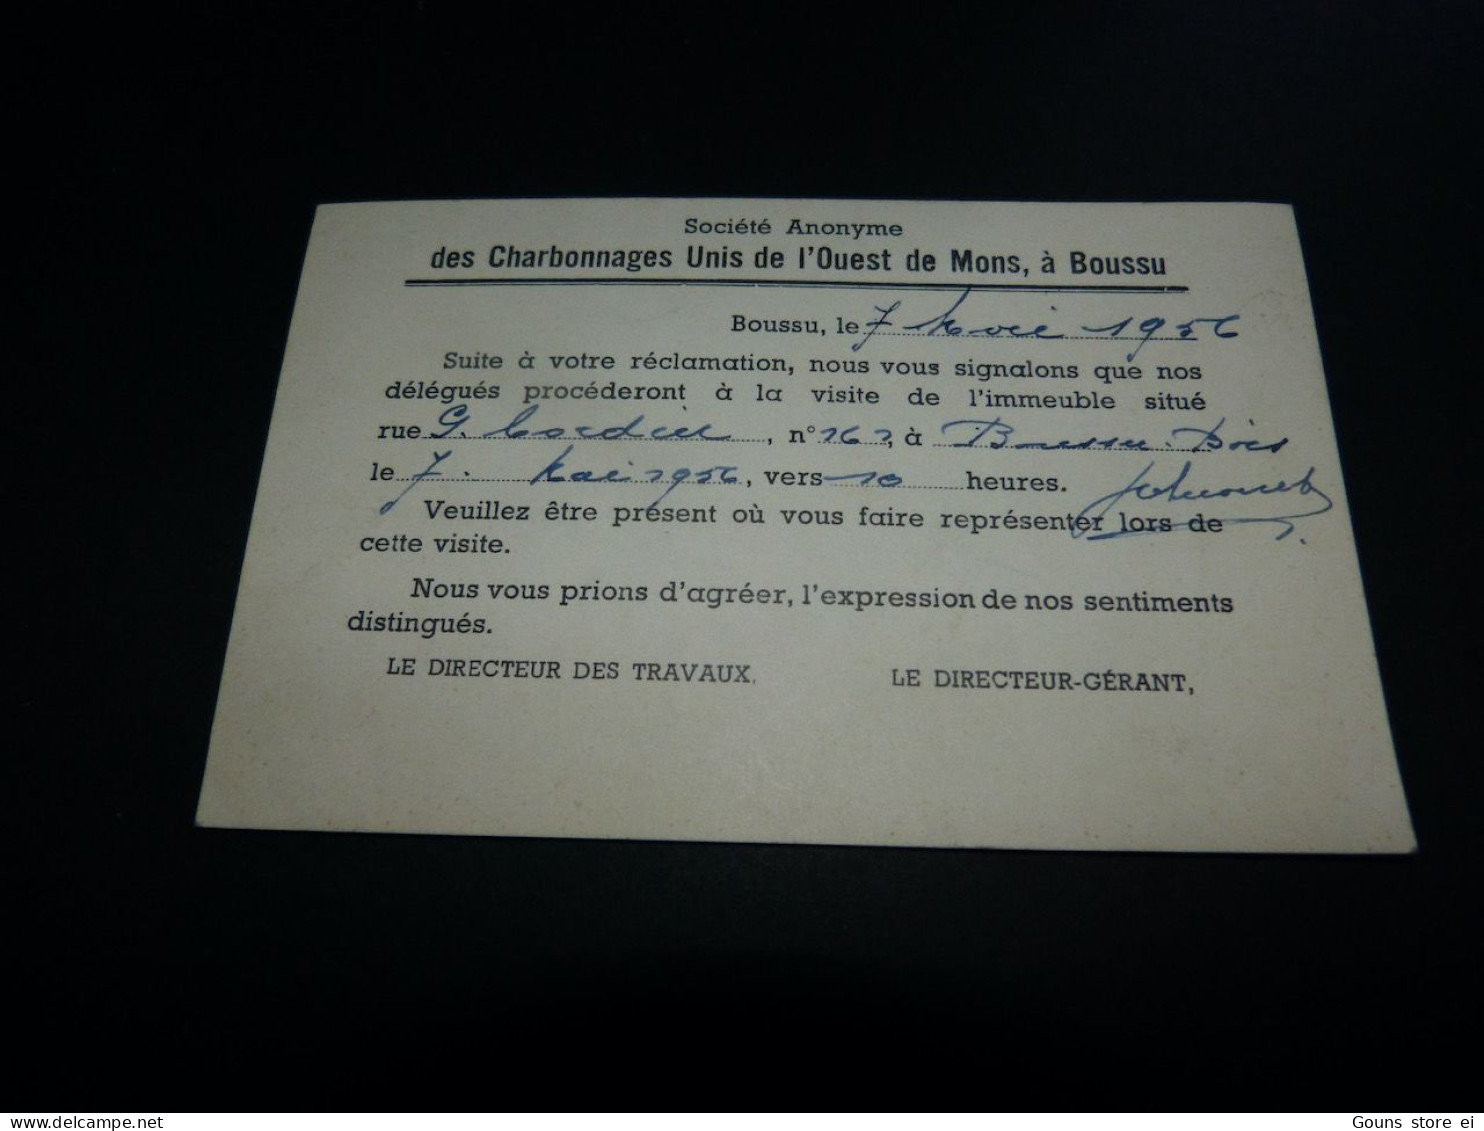 Société Anonyme
des Charbonnages Unis de l'Ouest de Mons, à Boussu
Boussu, le 7 Mai 1956
Suite à votre réclamation, nous vous signalons que nos
délégués procéderont à la visite de l'immeuble situé
rue G. Cordier, n° à Boussu-Bois
le 7 Mai 1956, vers 10 heures.
Veuillez être présent où vous faire représenter lors de
cette visite.
Nous vous prions d'agréer, l'expression de nos sentiments
distingués.
LE DIRECTEUR DES TRAVAUX. LE DIRECTEUR-GÉRANT,
Gouns store ei